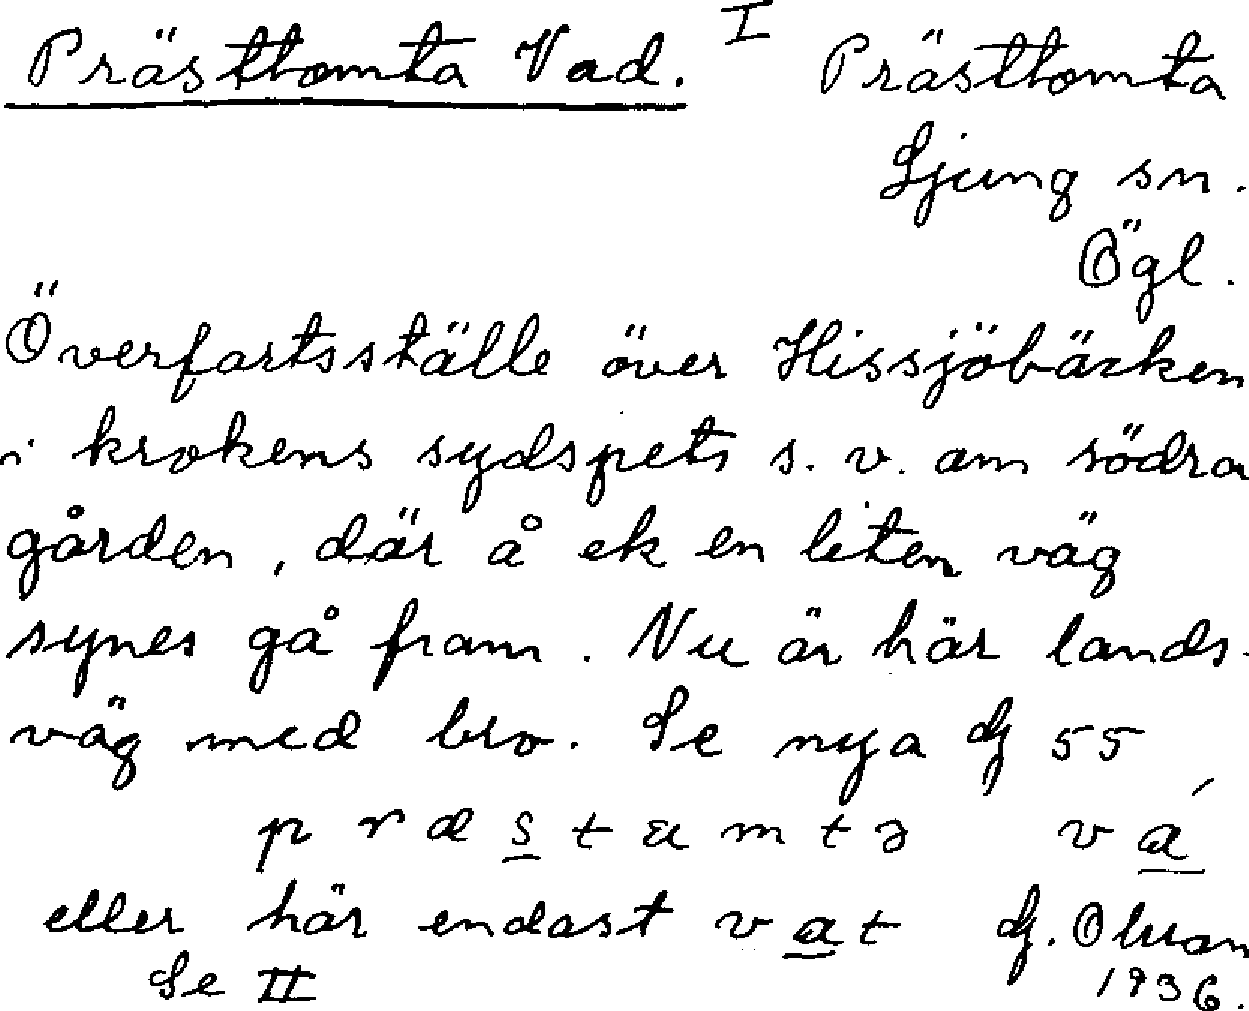 Prästtomta Vad. I Prästtomta
Ljung sn.
Ögl.
Överfartsställe över Hissjöbäcken
i krokens sydspets s. v. om södra
gården, där å ek en liten väg
synes gå fram. Nu är här lands-
väg med bro. Se nya 55
p r æ s t u m t ə v a
eller här endast v a t
Se II 1936.